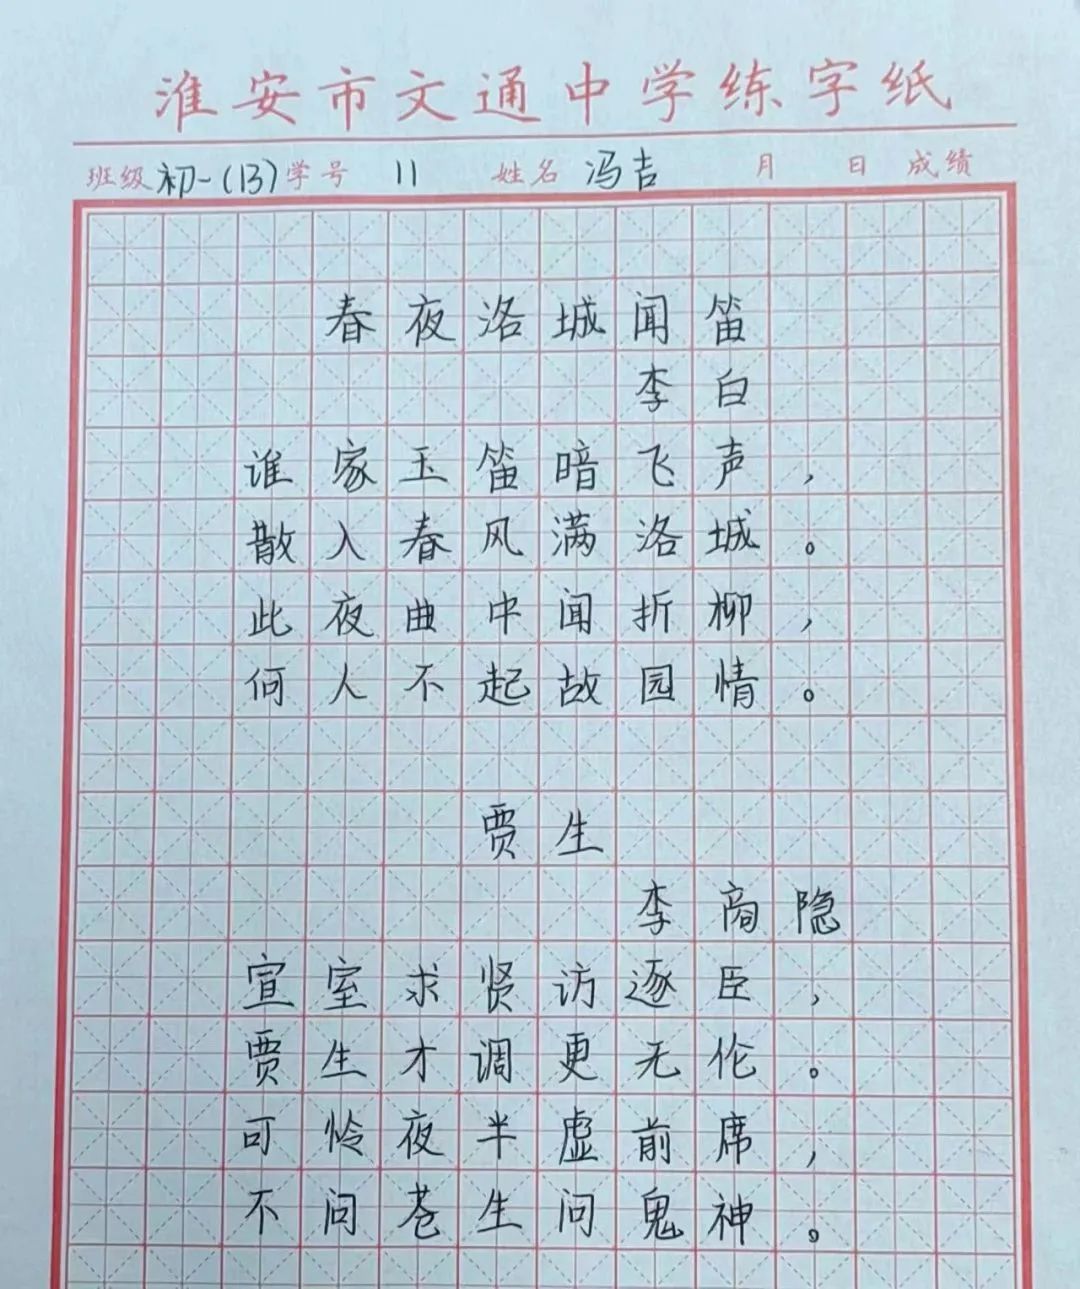 淮安市文通中学练字纸
班级 初一(13) 学号 11 姓名 冯吉 月 日 成绩
春夜洛城闻笛
李白
谁家玉笛暗飞声，
散入春风满洛城。
此夜曲中闻折柳，
何人不起故园情。
贾生
李商隐
宣室求贤访逐臣，
贾生才调更无伦。
可怜夜半虚前席，
不问苍生问鬼神。